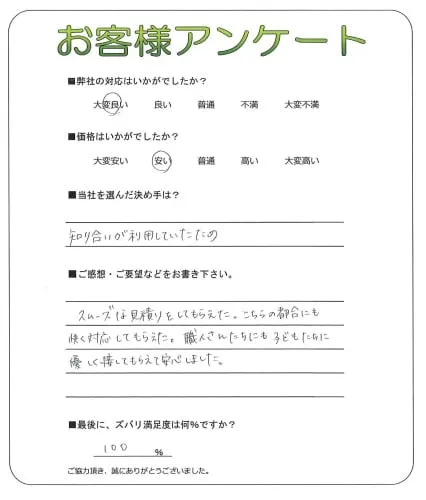 お客様アンケート
■弊社の対応はいかがでしたか？
大変良い 良い 普通 不満 大変不満
■価格はいかがでしたか？
大変安い 安い 普通 高い 大変高い
■当社を選んだ決め手は？
知り合いが利用していたため
■ご感想・ご要望などをお書き下さい。
スムーズな見積りをしてもらえた。こちらの都合にも
快く対応してもらえた。職人さんたちにも子どもたちに
優しく接してもらえて安心しました。
■最後に、ズバリ満足度は何％ですか？
100 ％
ご協力頂き、誠にありがとうございました。